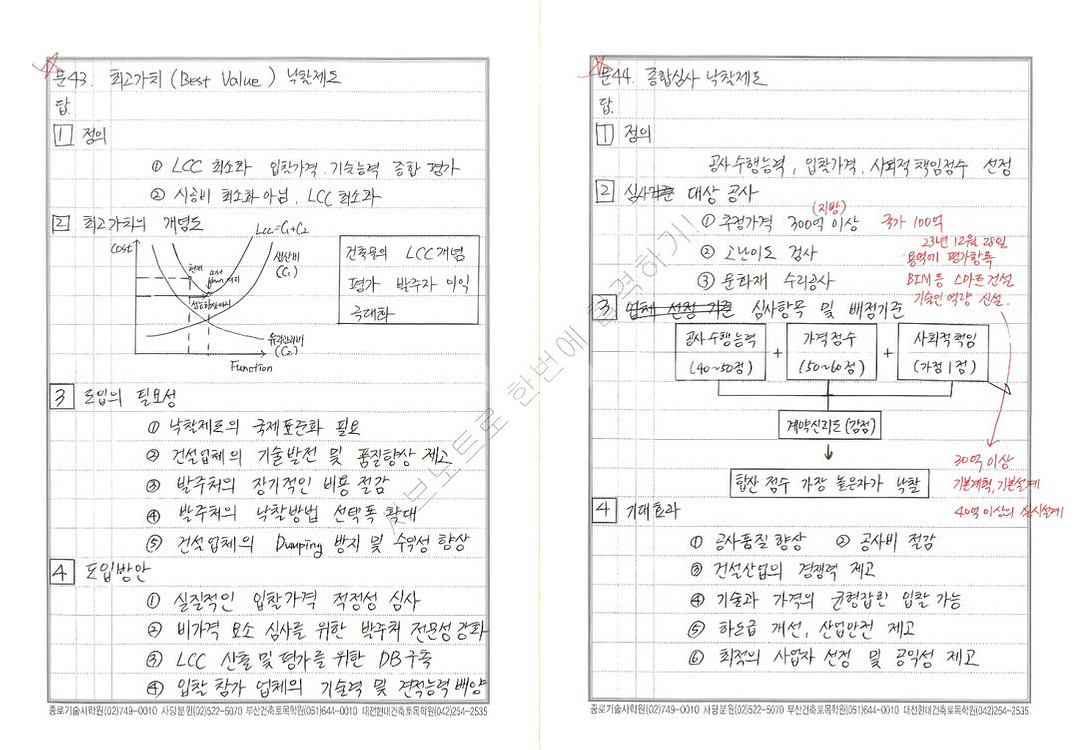 문43. 최고가치 (Best Value) 낙찰제도
답.
1 정의
① LCC 최소화 입찰가격. 기술능력 종합 평가
② 시공비 최소화 아님, LCC 최소화
2 최고가치의 개념도
Cost
LCC=C1+C2
생산비
(C1)
현재
유지관리비
(C2)
Function
건축물의 LCC 개념
평가 발주자 이익
극대화
3 도입의 필요성
① 낙찰제도의 국제표준화 필요
② 건설업체의 기술발전 및 품질향상 제고
③ 발주처의 장기적인 비용 절감
④ 발주처의 낙찰방법 선택폭 확대
⑤ 건설업체의 Dumping 방지 및 수익성 향상
4 도입방안
① 실질적인 입찰가격 적정성 심사
② 비가격 요소 심사를 위한 발주처 전문성 강화
③ LCC 산출 및 평가를 위한 DB 구축
④ 입찰 참가 업체의 기술력 및 견적능력 배양
종로기술사학원(02)749-0010 사당분원(02)522-5070 부산건축토목학원(051)644-0010 대전현대건축토목학원(042)254-2535
문44. 종합심사 낙찰제도
답.
1 정의
공사수행능력, 입찰가격, 사회적 책임점수 선정
2 심사기준 대상 공사
(지방)
① 추정가격 300억 이상 국가 100억
② 고난이도 검사
③ 문화재 수리공사
23년 12월 28일
용역에 평가항목
BIM등 스마트건설
기술인 역량 신설.
3 업체 선정 기준 심사항목 및 배점기준
공사수행능력
(40~50점)
+
가격점수
(50~60점)
+
사회적책임
(가점 1점)
계약신뢰도(감점)
합산 점수 가장 높은자가 낙찰
30억 이상
기본계획, 기본설계
40억 이상의 실시설계
4 기대효과
① 공사품질 향상 ② 공사비 절감
③ 건설산업의 경쟁력 제고
④ 기술과 가격의 균형잡힌 입찰 가능
⑤ 하도급 개선, 산업안전 제고
⑥ 최적의 사업자 선정 및 공익성 제고
종로기술사학원(02)749-0010 사당분원(02)522-5070 부산건축토목학원(051)644-0010 대전현대건축토목학원(042)254-2535
서브노트로 한번에 합격하기!